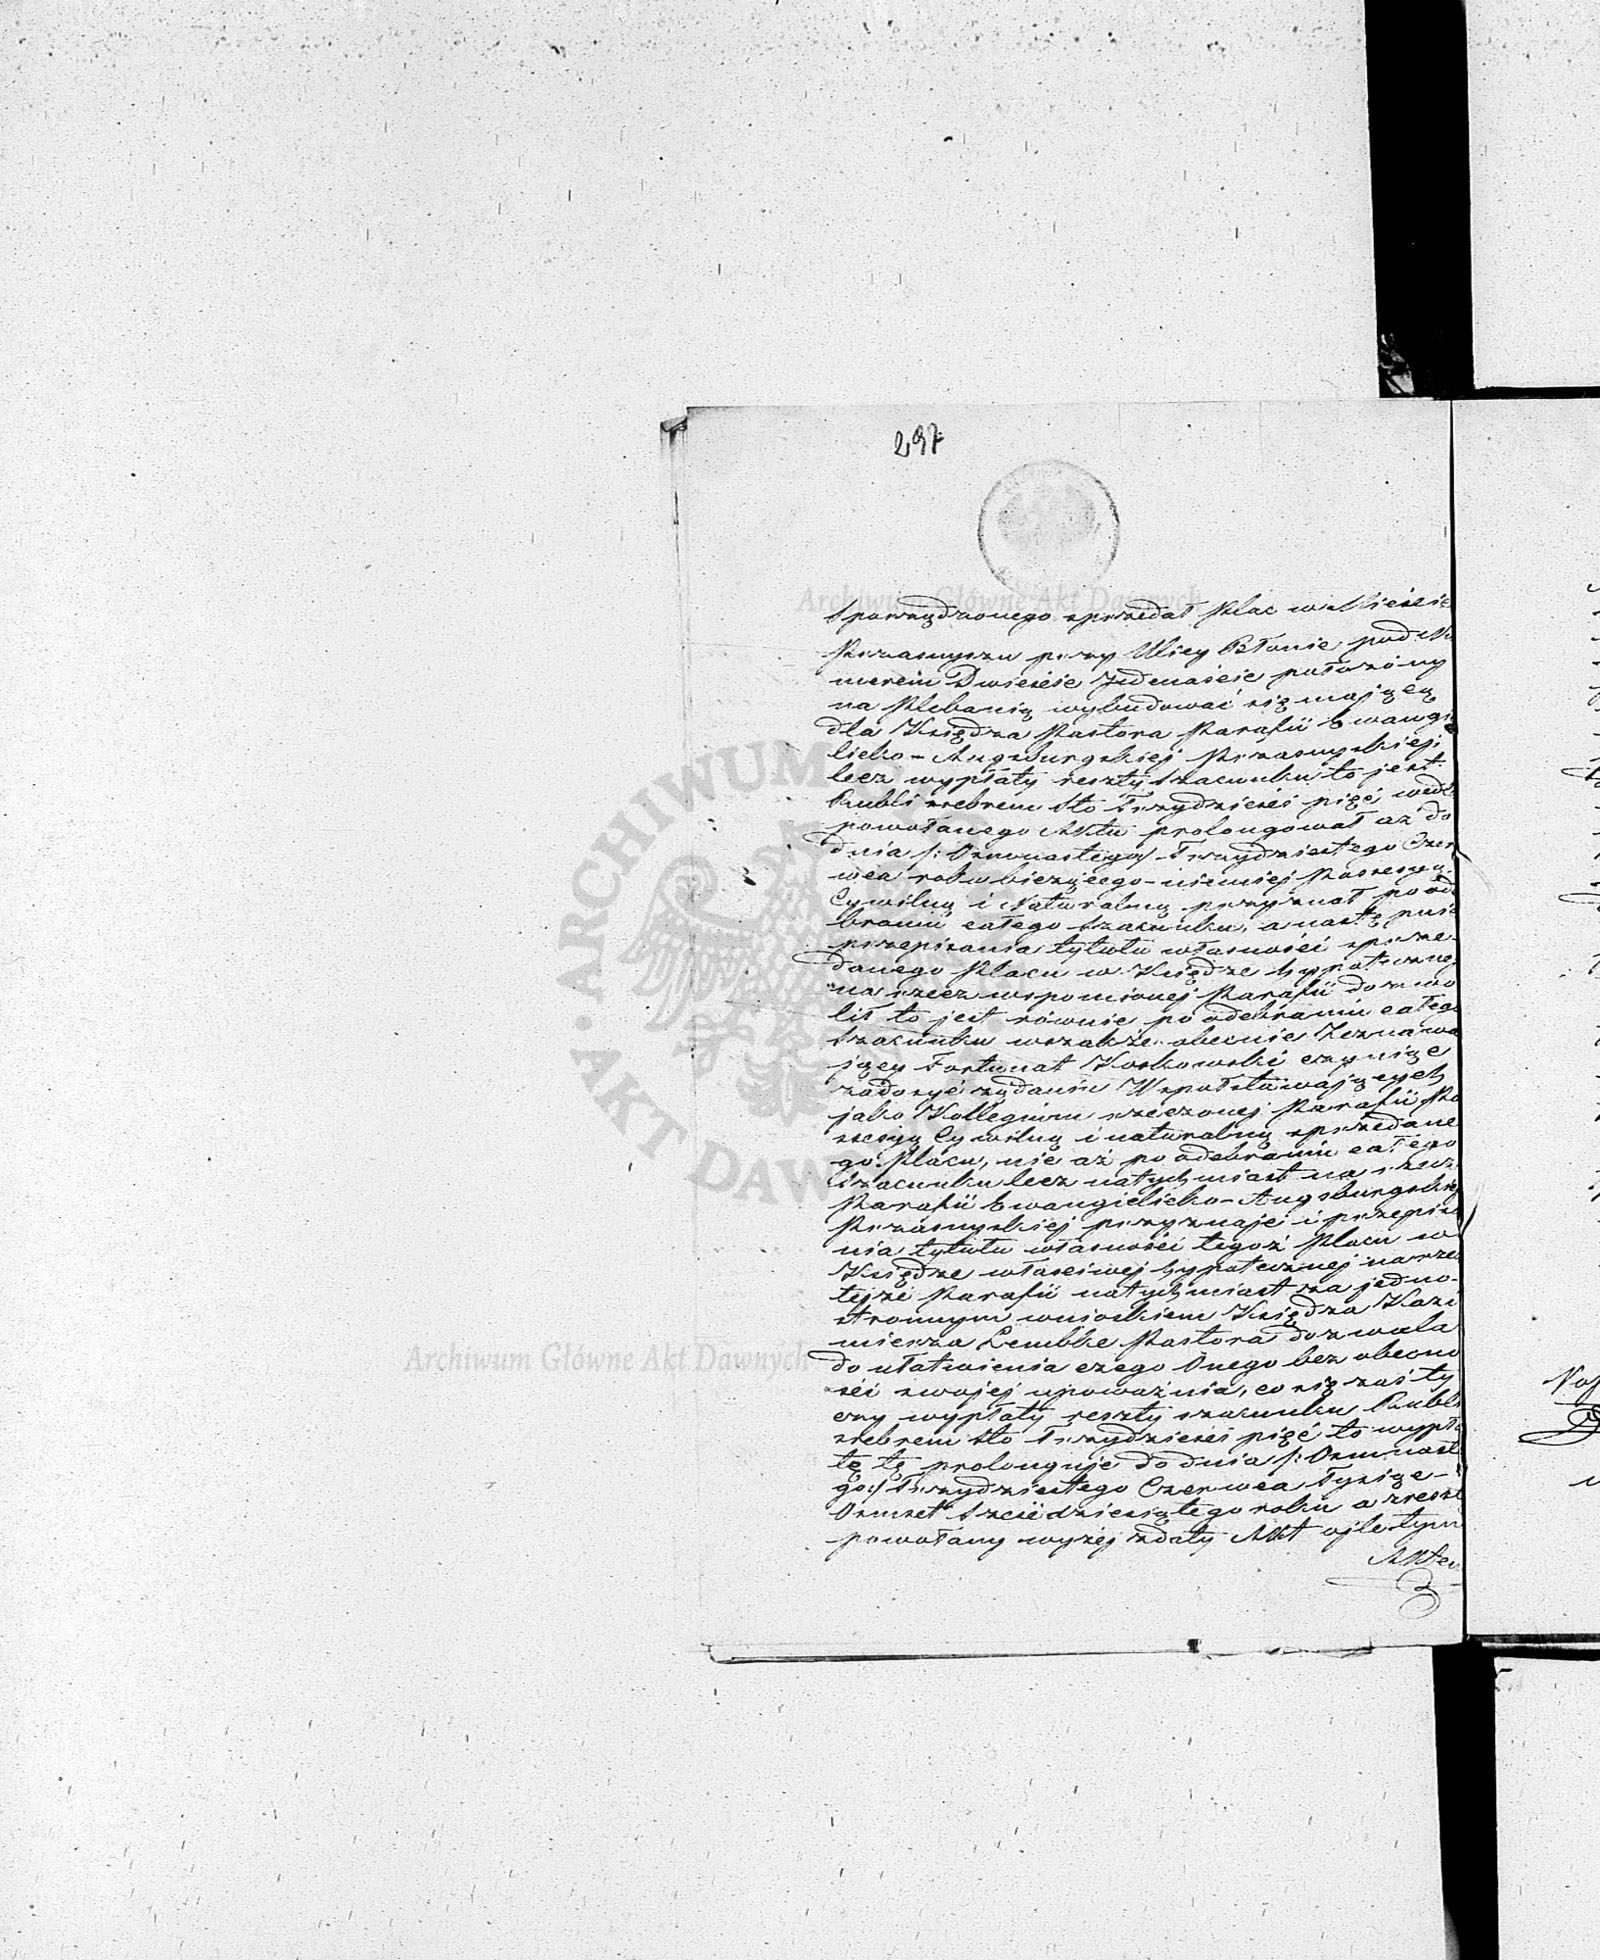 297
Archiwum Główne Akt Dawnych
sporządzonego sprzedał Plac w Mieście
Przasnyszu przy Ulicy Błonie pod Nu
merem Dwieście Jedenaście położony
na Plebanią wybudować się mającą
dla Księdza Pastora Parafii Ewangie
licko-Augsburgskiej Przasnyskiej;
lecz wypłaty reszty szacunku to jest
Rubli srebrem sto Trzydzieści pięć wedł
powołanego Aktu prolongował aż do
dnia /: Osmnastego / Trzydziestego Czer
wca roku bieżącego - niemniej Possessyą
Cywilną i Naturalną przyznał po ode
braniu całego szacunku, a następnie
przepisania tytułu własności sprze-
danego Placu w Księdze hypotecznej
na rzecz wspomionej Parafii dozwo
lił to jest równie po odebraniu całego
szacunku wszakże obecnie Zeznawa
jący Fortunat Koskowski czyniąc
zadosyć żądaniu Współstawających
jako Kollegium rzeczonej Parafii Po
ssessyą Cywilną i naturalną sprzedane
go Placu, nie aż po odebraniu całego
szacunku lecz natychmiast na rzecz
Parafii Ewangielicko-Augsburgskiej
Przasnyskiej przyznaje i przepisa
nia tytułu własności tegoż Placu w
Księdze właściwej hypotecznej na rzecz
tejże Parafii natychmiast za jedno-
stronnym wnioskiem Księdza Kazi
mierza Lembke Pastora dozwala
Archiwum Główne Akt Dawnych
do ułatwienia czego Onego bez obecno
ści swojej upoważnia, co się zaś ty
czy wypłaty reszty szacunku Rubli
srebrem sto Trzydzieści pięć to wypła
tę tę prolonguje do dnia /: Osmnaste
go:/ Trzydziestego Czerwca Tysiąc-
Osmset Sześćdziesiątego roku a zreszt
powołany wyżej zdaty Akt o ile tym
Aktem
ARCHIWUM
AKT DAW